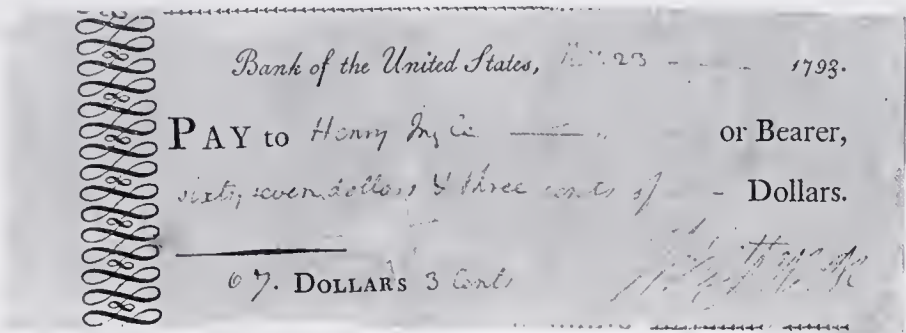 Bank of the United States, 23 1793.
PAY to Henry or Bearer,
sixty seven dollars & three cents Dollars.
67. DOLLARS 3 Cents